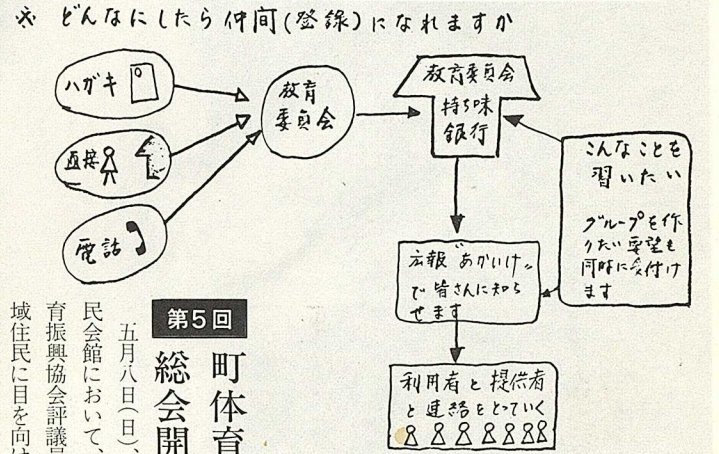 ※ どんなにしたら仲間(登録)になれますか
ハガキ
直接
電話
教育
委員会
教育委員会
持ち味
銀行
こんなことを
習いたい
グループを作
りたい要望も
同時に受付け
ます
広報"あかいけ"
で皆さんに知ら
せます
利用者と提供者
と連絡をとっていく
第5回
町体育
総会開
五月八日(日)、
民会館において、
育振興協会評議員
域住民に目を向け